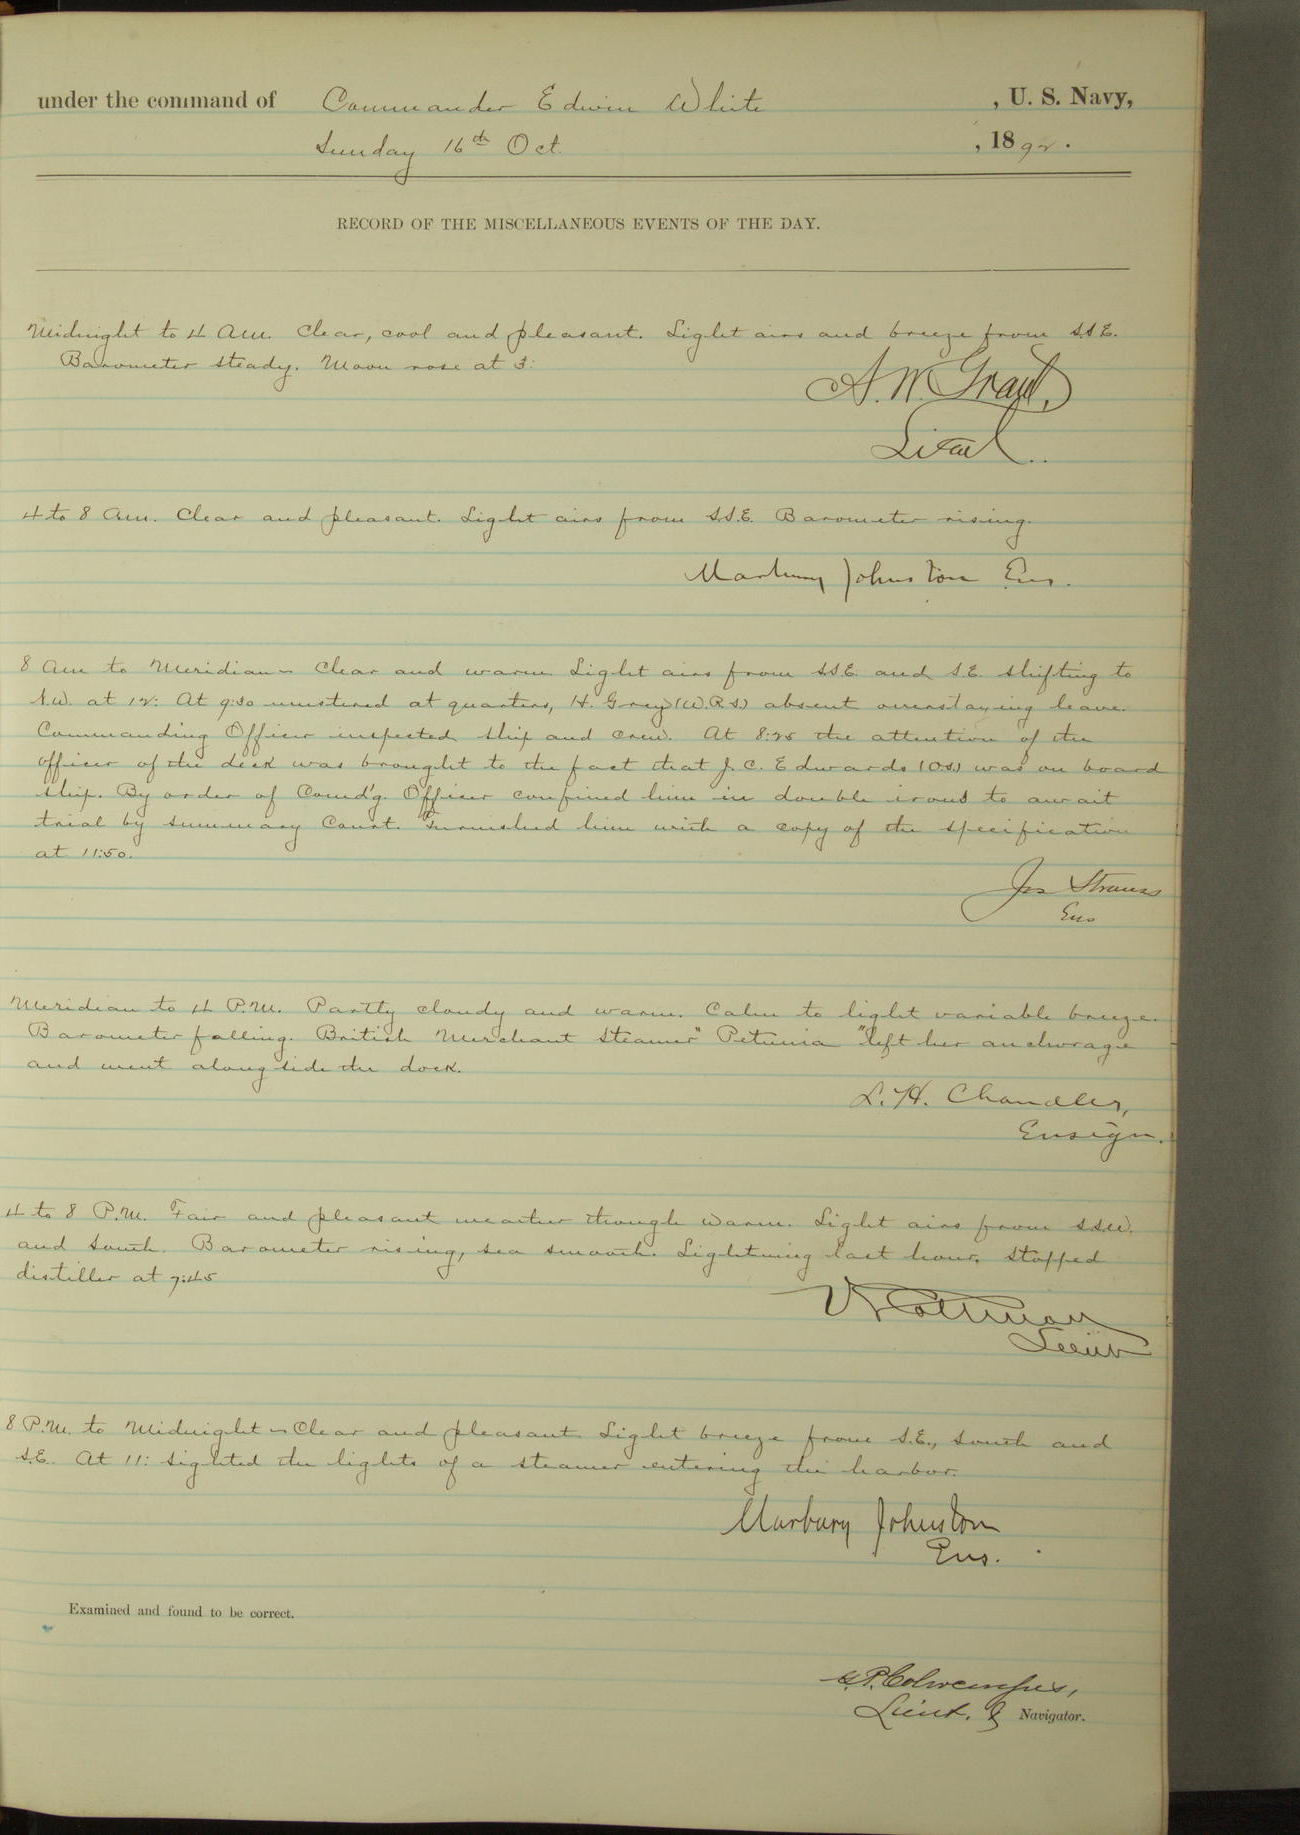 under the command of Commander Edwin White , U. S. Navy,
Sunday 16th Oct. , 1892.
RECORD OF THE MISCELLANEOUS EVENTS OF THE DAY.
Midnight to 4 AM. Clear, cool and pleasant. Light airs and breeze from S.S.E.
Barometer steady. Moon rose at 3:
A. W. Grant,
Lieut.
4 to 8 AM. Clear and pleasant. Light airs from S.S.E. Barometer rising.
Marbury Johnston Ens.
8 AM to Meridian - Clear and warm Light airs from S.S.E. and S.E. shifting to
N.W. at 12: At 9:30 mustered at quarters, H. Grey (W.R.S.) absent overstaying leave.
Commanding Officer inspected ship and crew. At 8:25 the attention of the
officer of the deck was brought to the fact that J. C. Edwards (OS.) was on board
ship. By order of Comd'g. Officer confined him in double irons to await
trial by summary Court. Furnished him with a copy of the specification
at 11:50.
Jos Strauss
Ens
Meridian to 4 P.M. Partly cloudy and warm. Calm to light variable breeze.
Barometer falling. British Merchant Steamer "Petunia" left her anchorage
and went alongside the dock.
L. H. Chandler,
Ensign.
4 to 8 P.M. Fair and pleasant weather though warm. Light airs from S.S.W.
and South. Barometer rising, sea smooth. Lightning last hour. Stopped
distiller at 7:45
Cottman
Lieut
8 P.M. to Midnight - Clear and pleasant Light breeze from S.E., South and
S.E. At 11: sighted the lights of a steamer entering the harbor.
Marbury Johnston
Ens.
Examined and found to be correct.
Lieut. & Navigator.